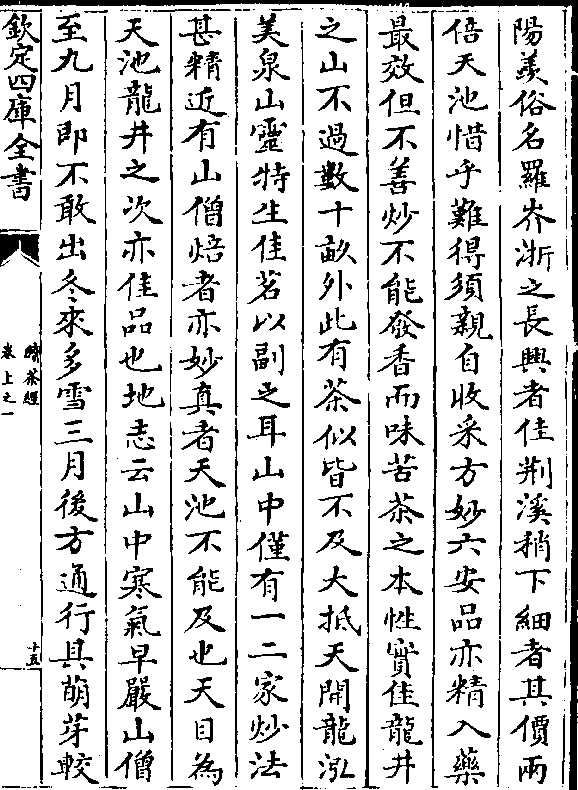 陽羨俗名羅岕浙之長興者佳荆溪稍下細者其價兩
倍天池惜乎難得須親自收采方妙六安品亦精入藥
最效但不善炒不能發香而味苦茶之本性實佳龍井
之山不過數十畝外此有茶似皆不及大抵天開龍泓
美泉山靈特生佳茗以副之耳山中僅有一二家炒法
甚精近有山僧焙者亦妙真者天池不能及也天目為
天池龍井之次亦佳品也地志云山中寒氣早嚴山僧
至九月即不敢出冬來多雪三月後方通行其萌芽較
欽定四庫全書
續茶經
卷上之一
十五